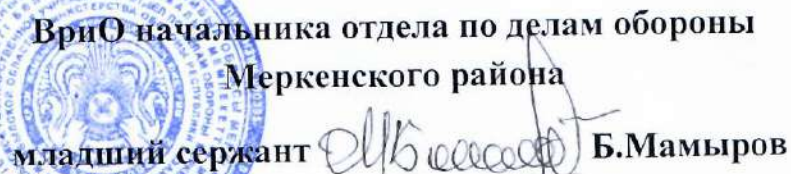 ВриО начальника отдела по делам обороны
Меркенского района
младший сержант Б.Мамыров